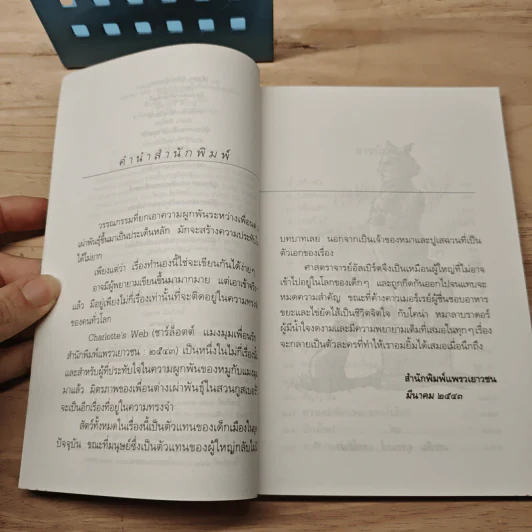 คำนำสำนักพิมพ์
วรรณกรรมที่ยกเอาความผูกพันระหว่างเพื่อนต่าง
เผ่าพันธุ์ขึ้นมาเป็นประเด็นหลัก มักจะสร้างความประทับใจ
ได้ไม่ยาก
เพียงแต่ว่า เรื่องทำนองนี้ใช่จะเขียนกันได้ง่ายๆ
อาจมีผู้พยายามเขียนขึ้นมามากมาย แต่เอาเข้าจริง
แล้ว มีอยู่เพียงไม่กี่เรื่องเท่านั้นที่จะติดอยู่ในความทรงจำ
ของคนทั่วโลก
Charlotte's Web (ชาร์ล็อตต์ แมงมุมเพื่อนรัก
สำนักพิมพ์แพรวเยาวชน : ๒๕๔๓) เป็นหนึ่งในไม่กี่เรื่องนั้น
และสำหรับผู้ที่ประทับใจในความผูกพันของหมูกับแมงมุม
มาแล้ว มิตรภาพของเพื่อนต่างเผ่าพันธุ์ในสวนกูสเบอร์รี่
จะเป็นอีกเรื่องที่อยู่ในความทรงจำ
สัตว์ทั้งหมดในเรื่องนี้เป็นตัวแทนของเด็กเมืองในยุค
ปัจจุบัน ขณะที่มนุษย์ซึ่งเป็นตัวแทนของผู้ใหญ่กลับไม่มี
บทบาทเลย นอกจากเป็นเจ้าของหมาและปูเสฉวนที่เป็น
ตัวเอกของเรื่อง
ศาสตราจารย์อัลเบิร์ตจึงเป็นเหมือนผู้ใหญ่ที่ไม่อาจ
เข้าไปอยู่ในโลกของเด็กๆ และถูกกีดกันออกไปจนแทบจะ
หมดความสำคัญ ขณะที่ค้างคาวเมอร์เรย์ผู้ชื่นชอบอาหาร
ขยะและไข่ยัดไส้เป็นชีวิตจิตใจ กับโคน่า หมาลาบราดอร์
ผู้มีน้ำใจงดงามและมีความพยายามเต็มที่เสมอในทุกๆ เรื่อง
จะกลายเป็นตัวละครที่ทำให้เราอมยิ้มได้เสมอเมื่อนึกถึง
สำนักพิมพ์แพรวเยาวชน
มีนาคม ๒๕๔๓